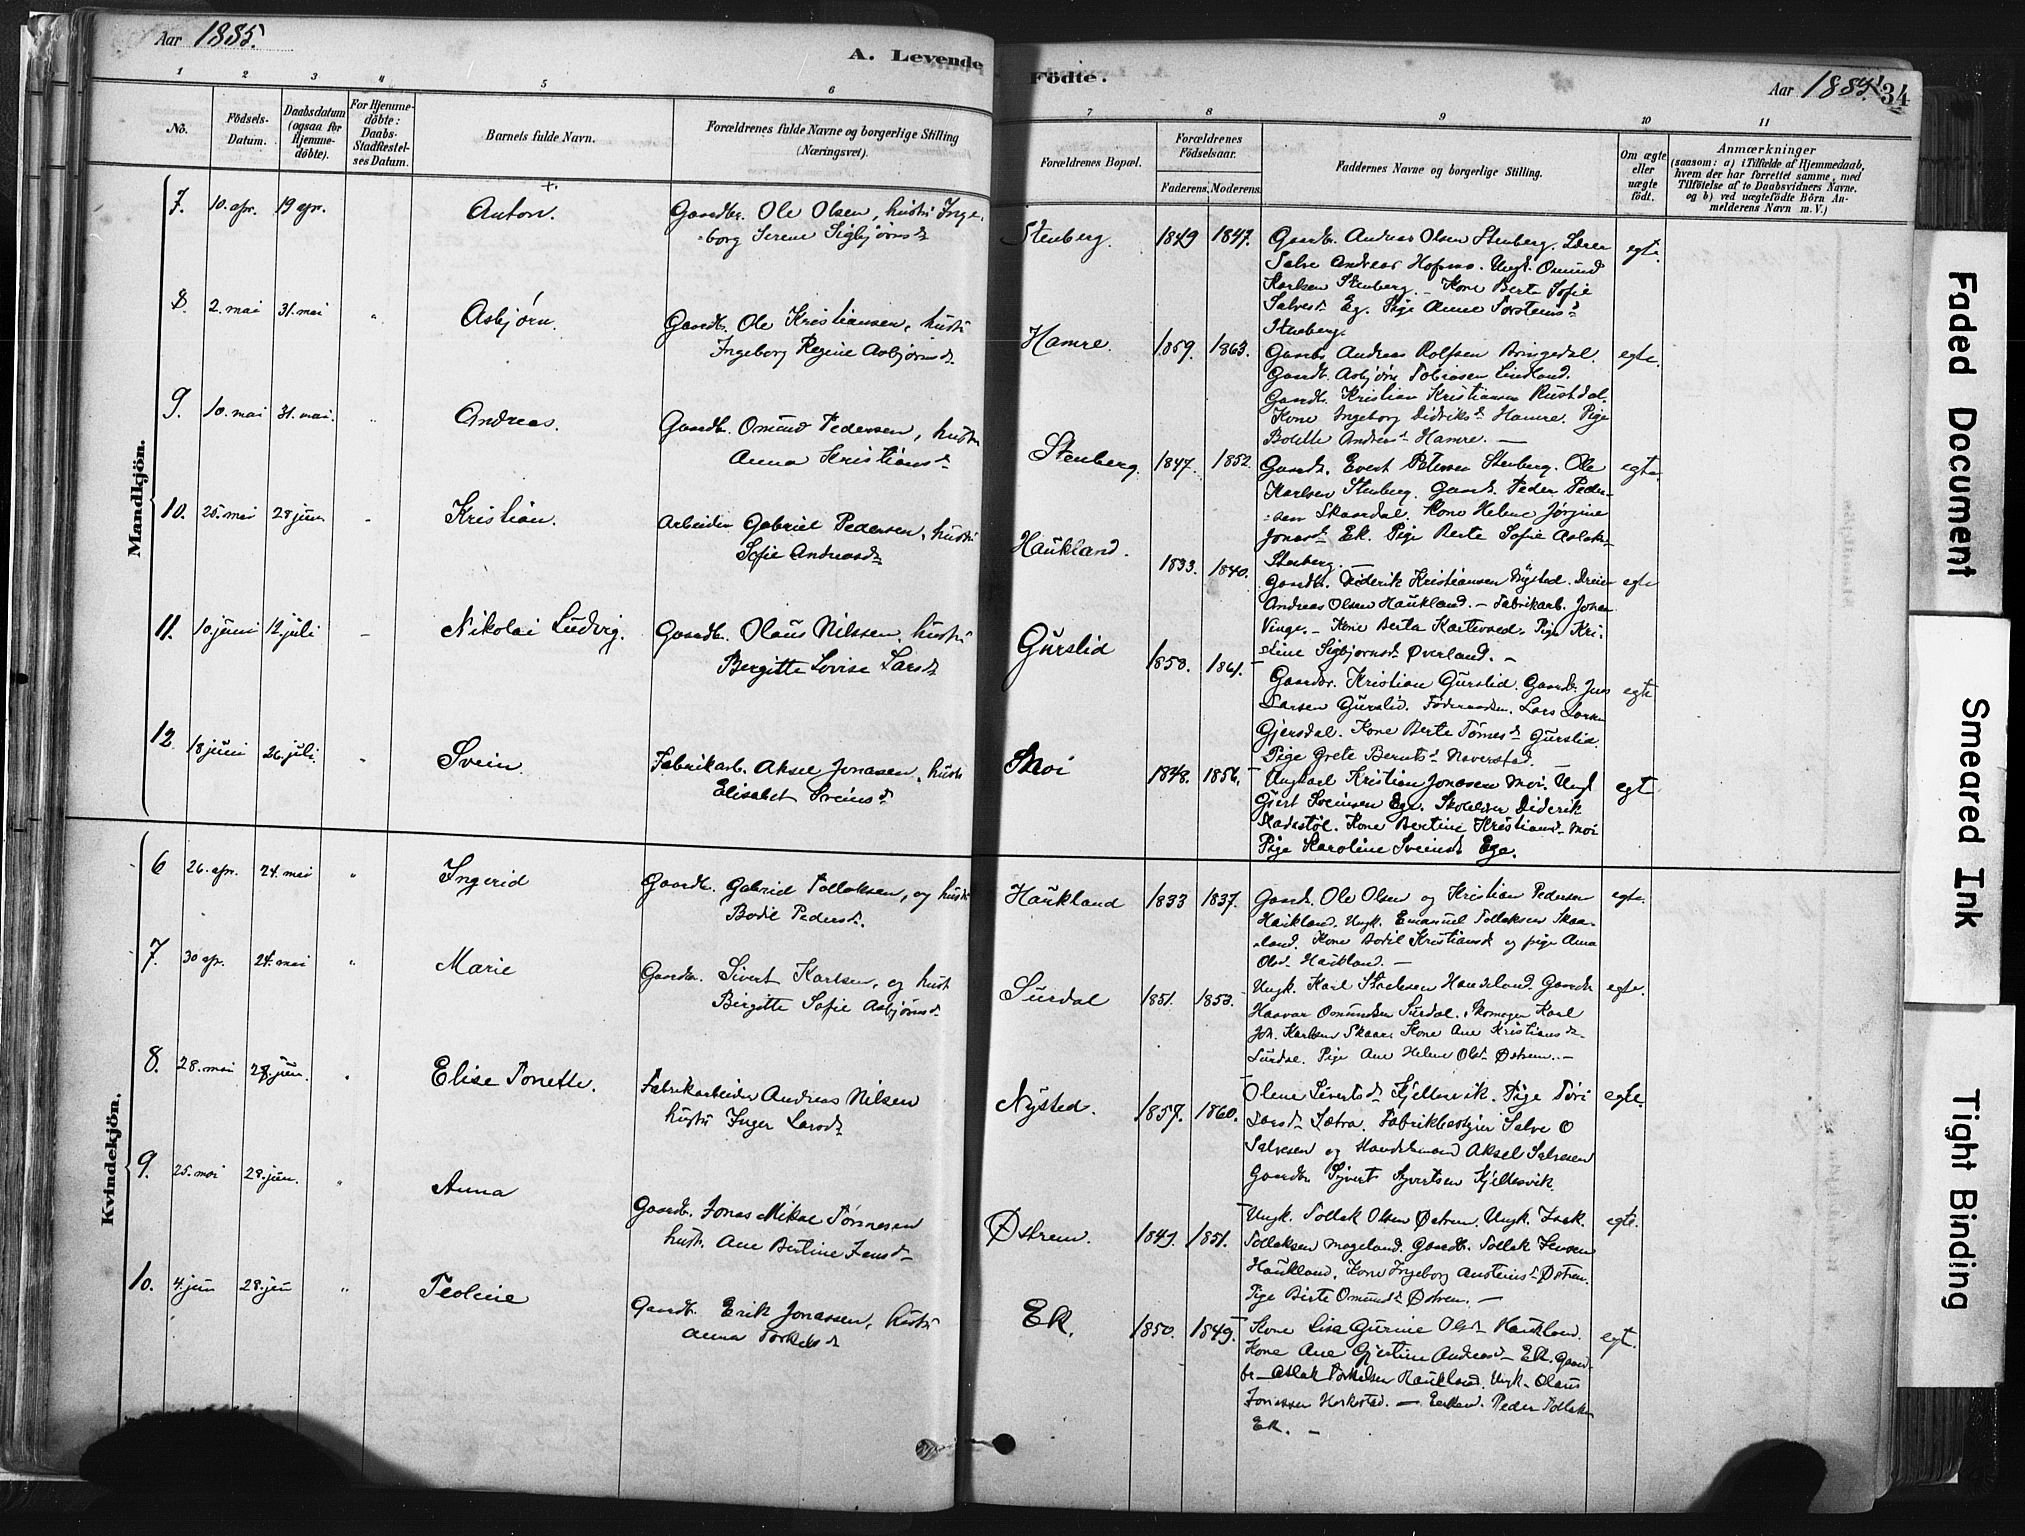 Aar 1885.
A. Levende
1 2 3 4 5 6
No.
Födsels-Datum.
Daabsdatum (ogsaa for Hjemme-døbte).
For Hjemme-døbte: Daabs-Stadfæstel-ses Datum.
Barnets fulde Navn.
Forældrenes fulde Navne og borgerlige Stilling
(Næringsvei).
Mandkjön.
7. 10. apr. 19 apr. Anton. Gaardbr. Ole Olsen, hustru Inge-
borg Serine Sigbjørnsdr
8. 2. mai 31. mai " Asbjørn. Gaardb. Ole Kristiansen, hustr
Ingeborg Regine Asbjørnsd
9. 10. mai 31. mai. " Andreas. Gaardb. Omund Pedersen, hustr
Anna Kristiansd
10. 25. mai 28 juni Kristian. Arbeider Gabriel Pedersen, hustr
Sofie Andreasd
11. 10. juni 12. juli Nikolai Ludvig. Gaardb. Olaus Nilssen, hustru
Bergitte Lovise Larsd
12. 18 juni 26. juli. Svein. Fabrikarb. Aksel Jonassen, hustr
Elisabet Sveinsd
Kvindekjön.
6 26. apr. 24. mai " Ingerid Gaardb. Gabriel Tollaksen, og hustr
Bodil Pedersd.
7. 30 apr. 24. mai " Marie Gaardb. Sivert Karlsen, og hustr
Birgitte Sofie Asbjørnsd
8. 28. mai 28. juni. Elise Tonette. Fabrikarbeider Andreas Nilsen
hustr Inger Larsd
9. 25. mai 28. jun. " Anna Gaardb. Jonas Mikal Tønnesen
hustr. Ane Bertine Jensd
10. 4. jun 28. jun " Teoline Gaardb. Erik Jonassen, hustr
Anna Torkelsd
Födte.
Aar 1885. 34
7 8 9 10 11
Forældrenes Bopæl.
Forældrenes Födselsaar.
Faderens. Moderens.
Faddernes Navne og borgerlige Stilling.
Om ægte eller uægte født.
Anmærkninger
(saasom: a) i Tilfælde af Hjemmedaab, hvem der har forrettet samme, med Tilføielse af to Daabsvidners Navne. og b) ved uægtefødte Börn Anmelderens Navn m. V.)
Stenberg. 1849 1847. Gaardb. Andreas Olsen Stenberg. Lærer egte.
Salve Andreas Hofmo. Ungk. Omund
Karlsen Stenberg. – Kone Berta Sofie
Salvesd Eg. Pige Anne Torsteinsd
Stenberg.
Hamre. 1859. 1863. Gaardb. Andreas Rolfsen Bringedal. egte.
Gaardb. Asbjørn Tobiasen Lindland.
Gaardb. Kristian Kristiansen Rustdal.
Kone Ingeborg Didriksd Hamre. Pige
Bolette Andreasd Hamre. –
Stenberg. 1847. 1852. Gaardb. Evert Petersen Stenberg. Ole egte.
Karlsen Stenberg. Gaardb. Peder Peder-
sen Skaardal. Kone Helene Jørgine
Jonasd Ek. Pige Berte Sofie Aslaks-
Stenberg. –
Haukland. 1833. 1840. Gaardb. Diderik Kristiansen Nysted. Dreier egte
Andreas Olsen Haukland. – Fabrikarb. Johan
Vinge. – Kone Berta Kartevoed. Pige Kri-
stine Sigbjørnsd Øverland. –
Gurslid 1850. 1861. Gaardbr. Kristian Gurslid. Gaardb. Jens egte
Larsen Gurslid. Føderaadsm. Lars Larsen
Gjersdal. Kone Berte Tønnesd Gurslid.
Pige Grete Berntsd Naverstad.
Moi 1848. 1856. Ungkarl Kristian Jonassen Moi. Ungk egt
Gjert Sveinsen Ege. Skolelærer Diderik
Stadestøl. Kone Bertine Kristiansd Moi
Pige Karoline Sveinsd Ege.
Haukland 1833 1837. Gaardb. Ole Olsen og Kristian Pedersen egte.
Haukland. Ungk. Emanuel Tollaksen Skaa-
land. Kone Bodil Kristiansd og pige Ana
Olsd Haukland. –
Surdal 1851. 1853. Ungk. Karl Haukland. Gaardb egte.
Haavar Omundsen Surdal. Skomager Karl
Joh. Karlsen Skaar. Kone Ane Kristiansd
Surdal. Pige Ane Helene Olsd Østrem. –
Nysted. 1857. 1860. Olene Sivertsd Kjellesvik. Pige Tori egte.
Larsd Sætra. Fabrikbestyrer Salve O
Salvesen og Handelsmand Aksel Salvesen
Gaardb. Syvert Syvertsen Kjellesvik.
Østrem. 1847. 1851. Ungk. Tollak Olsen Østrem. Ungk. Isak egte.
Tollaksen Mageland. Gaardb. Tollak Jensen
Haukland. Kone Ingeborg Ansteinsd Østrem.
Pige Birte Omundsd Østrem. –
Ek. 1850. 1849. Kone Lisa Gurine Olsd Haukland. egt.
Kone Ane Gjertine Andreasd – Ek. Gaard-
br – Aslak Torkelsen Haukland. Ungk. Olaus
Jonassen Herkestad. – Enkem. Peder Tollaksen
Ek. –
Faded Document
Smeared Ink
Tight Binding